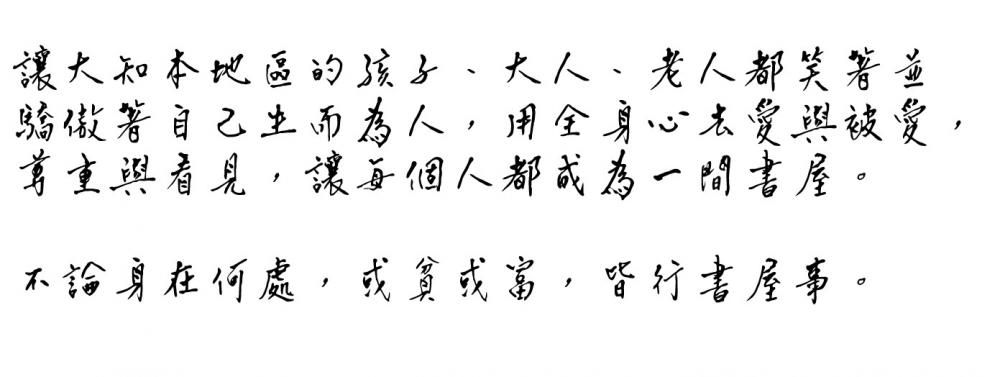 讓大知本地區的孩子、大人、老人都笑著並
驕傲著自己生而為人，用全身心去愛與被愛，
尊重與看見，讓每個人都成為一間書屋。
不論身在何處，或貧或富，皆行書屋事。